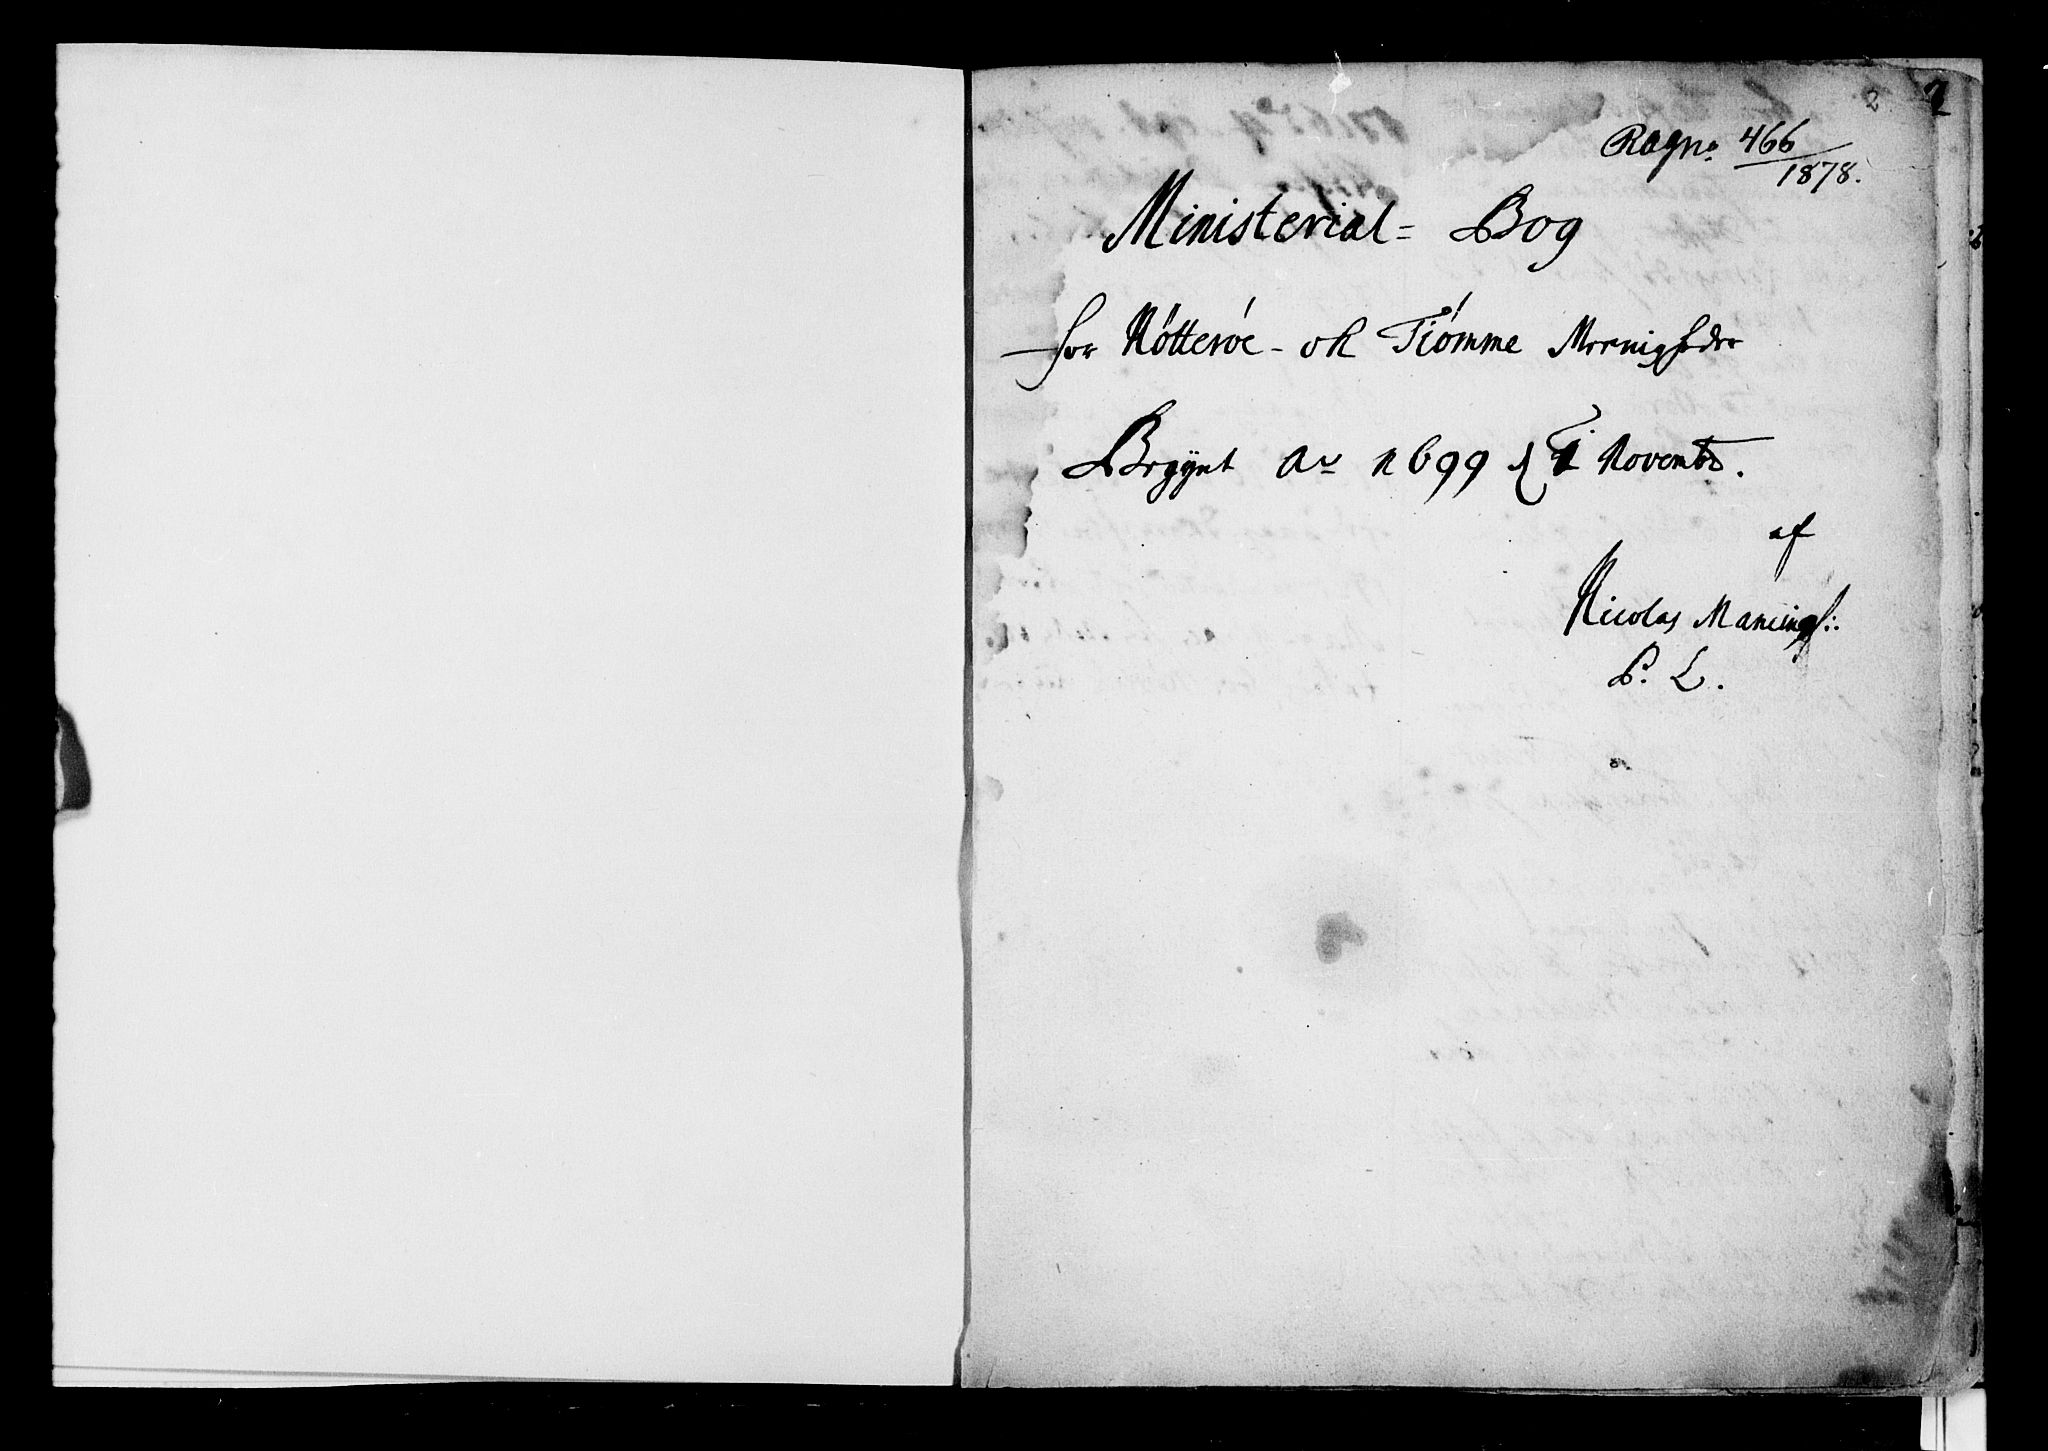 2 2
Ragno 466/1878.
Ministerial= Bog
for Nötteröe - ok Tiömme Meenigheder
Begÿnt Ao 1699 d 1 Novemb.
af
Nicolas
P. L.